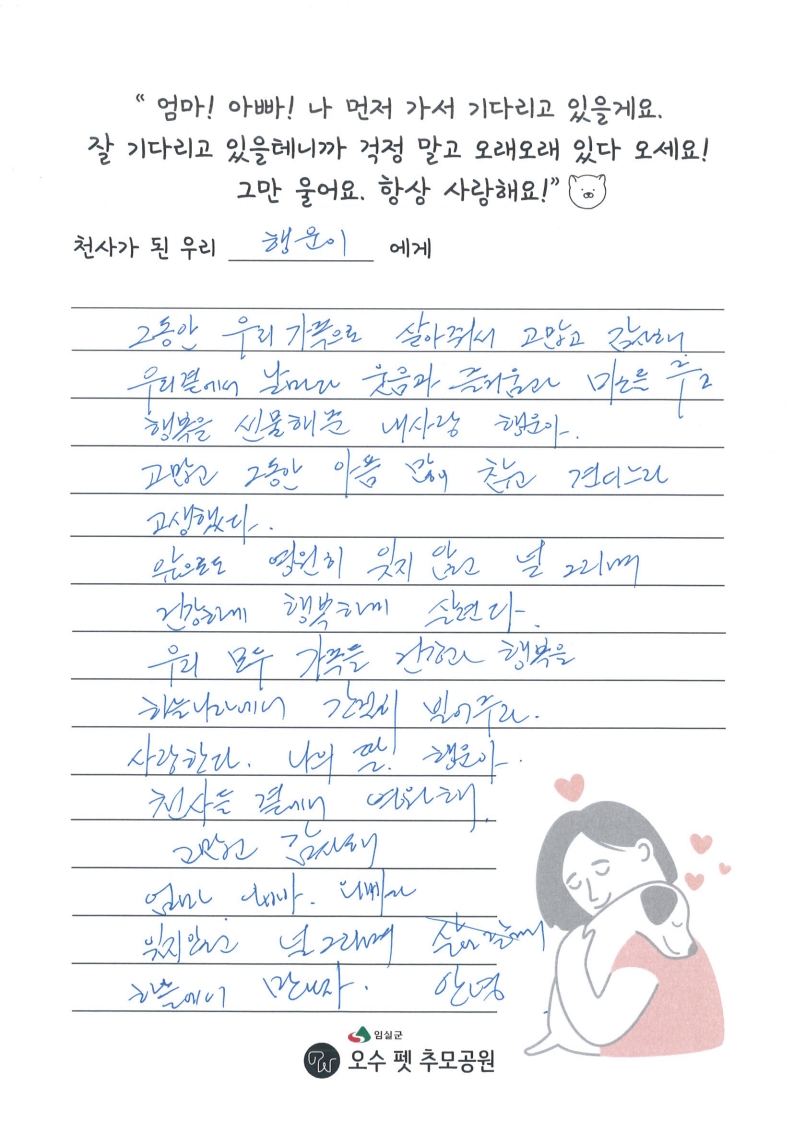 “ 엄마! 아빠! 나 먼저 가서 기다리고 있을게요.
잘 기다리고 있을테니까 걱정 말고 오래오래 있다 오세요!
그만 울어요. 항상 사랑해요!”
천사가 된 우리 행운이 에게
그동안 우리 가족으로 살아줘서 고맙고 감사해
우리곁에서 날마다 웃음과 즐거움과 미소를 주고
행복을 선물해준 내사랑 행운아.
고맙고 그동안 아픔 많이 참고 견디느라
고생했다.
앞으로도 영원히 잊지 않고 널 그리며
건강하게 행복하게 살련다.
우리 모두 가족들 건강과 행복을
하늘나라에서 간절히 빌어주라.
사랑한다. 나의 딸! 행운아.
천사들 곁에서 영원해.
고맙고 감사해
엄마
잊지않고 널그리며
하늘에서 만나자. 안녕
임실군
오수 펫 추모공원